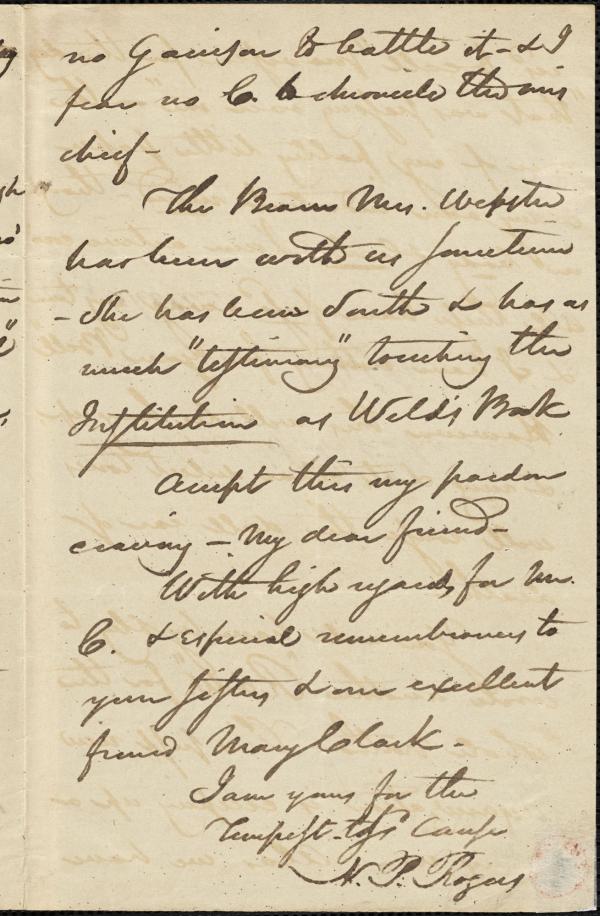 no Garrison to battle it - & I
fear no C. to chronicle the mis
chief -
The Mrs. Webster
has been with us sometime
- She has been South & has as
much "testimony" touching the
Institution as Weld's Book
Accept this my pardon
craving - My dear friend -
With high regards for Mr.
C. & especial remembrances to
your sisters & our excellent
friend Mary Clark -
I am yours for the
Tempest-tost Cause
N. P. Rogers